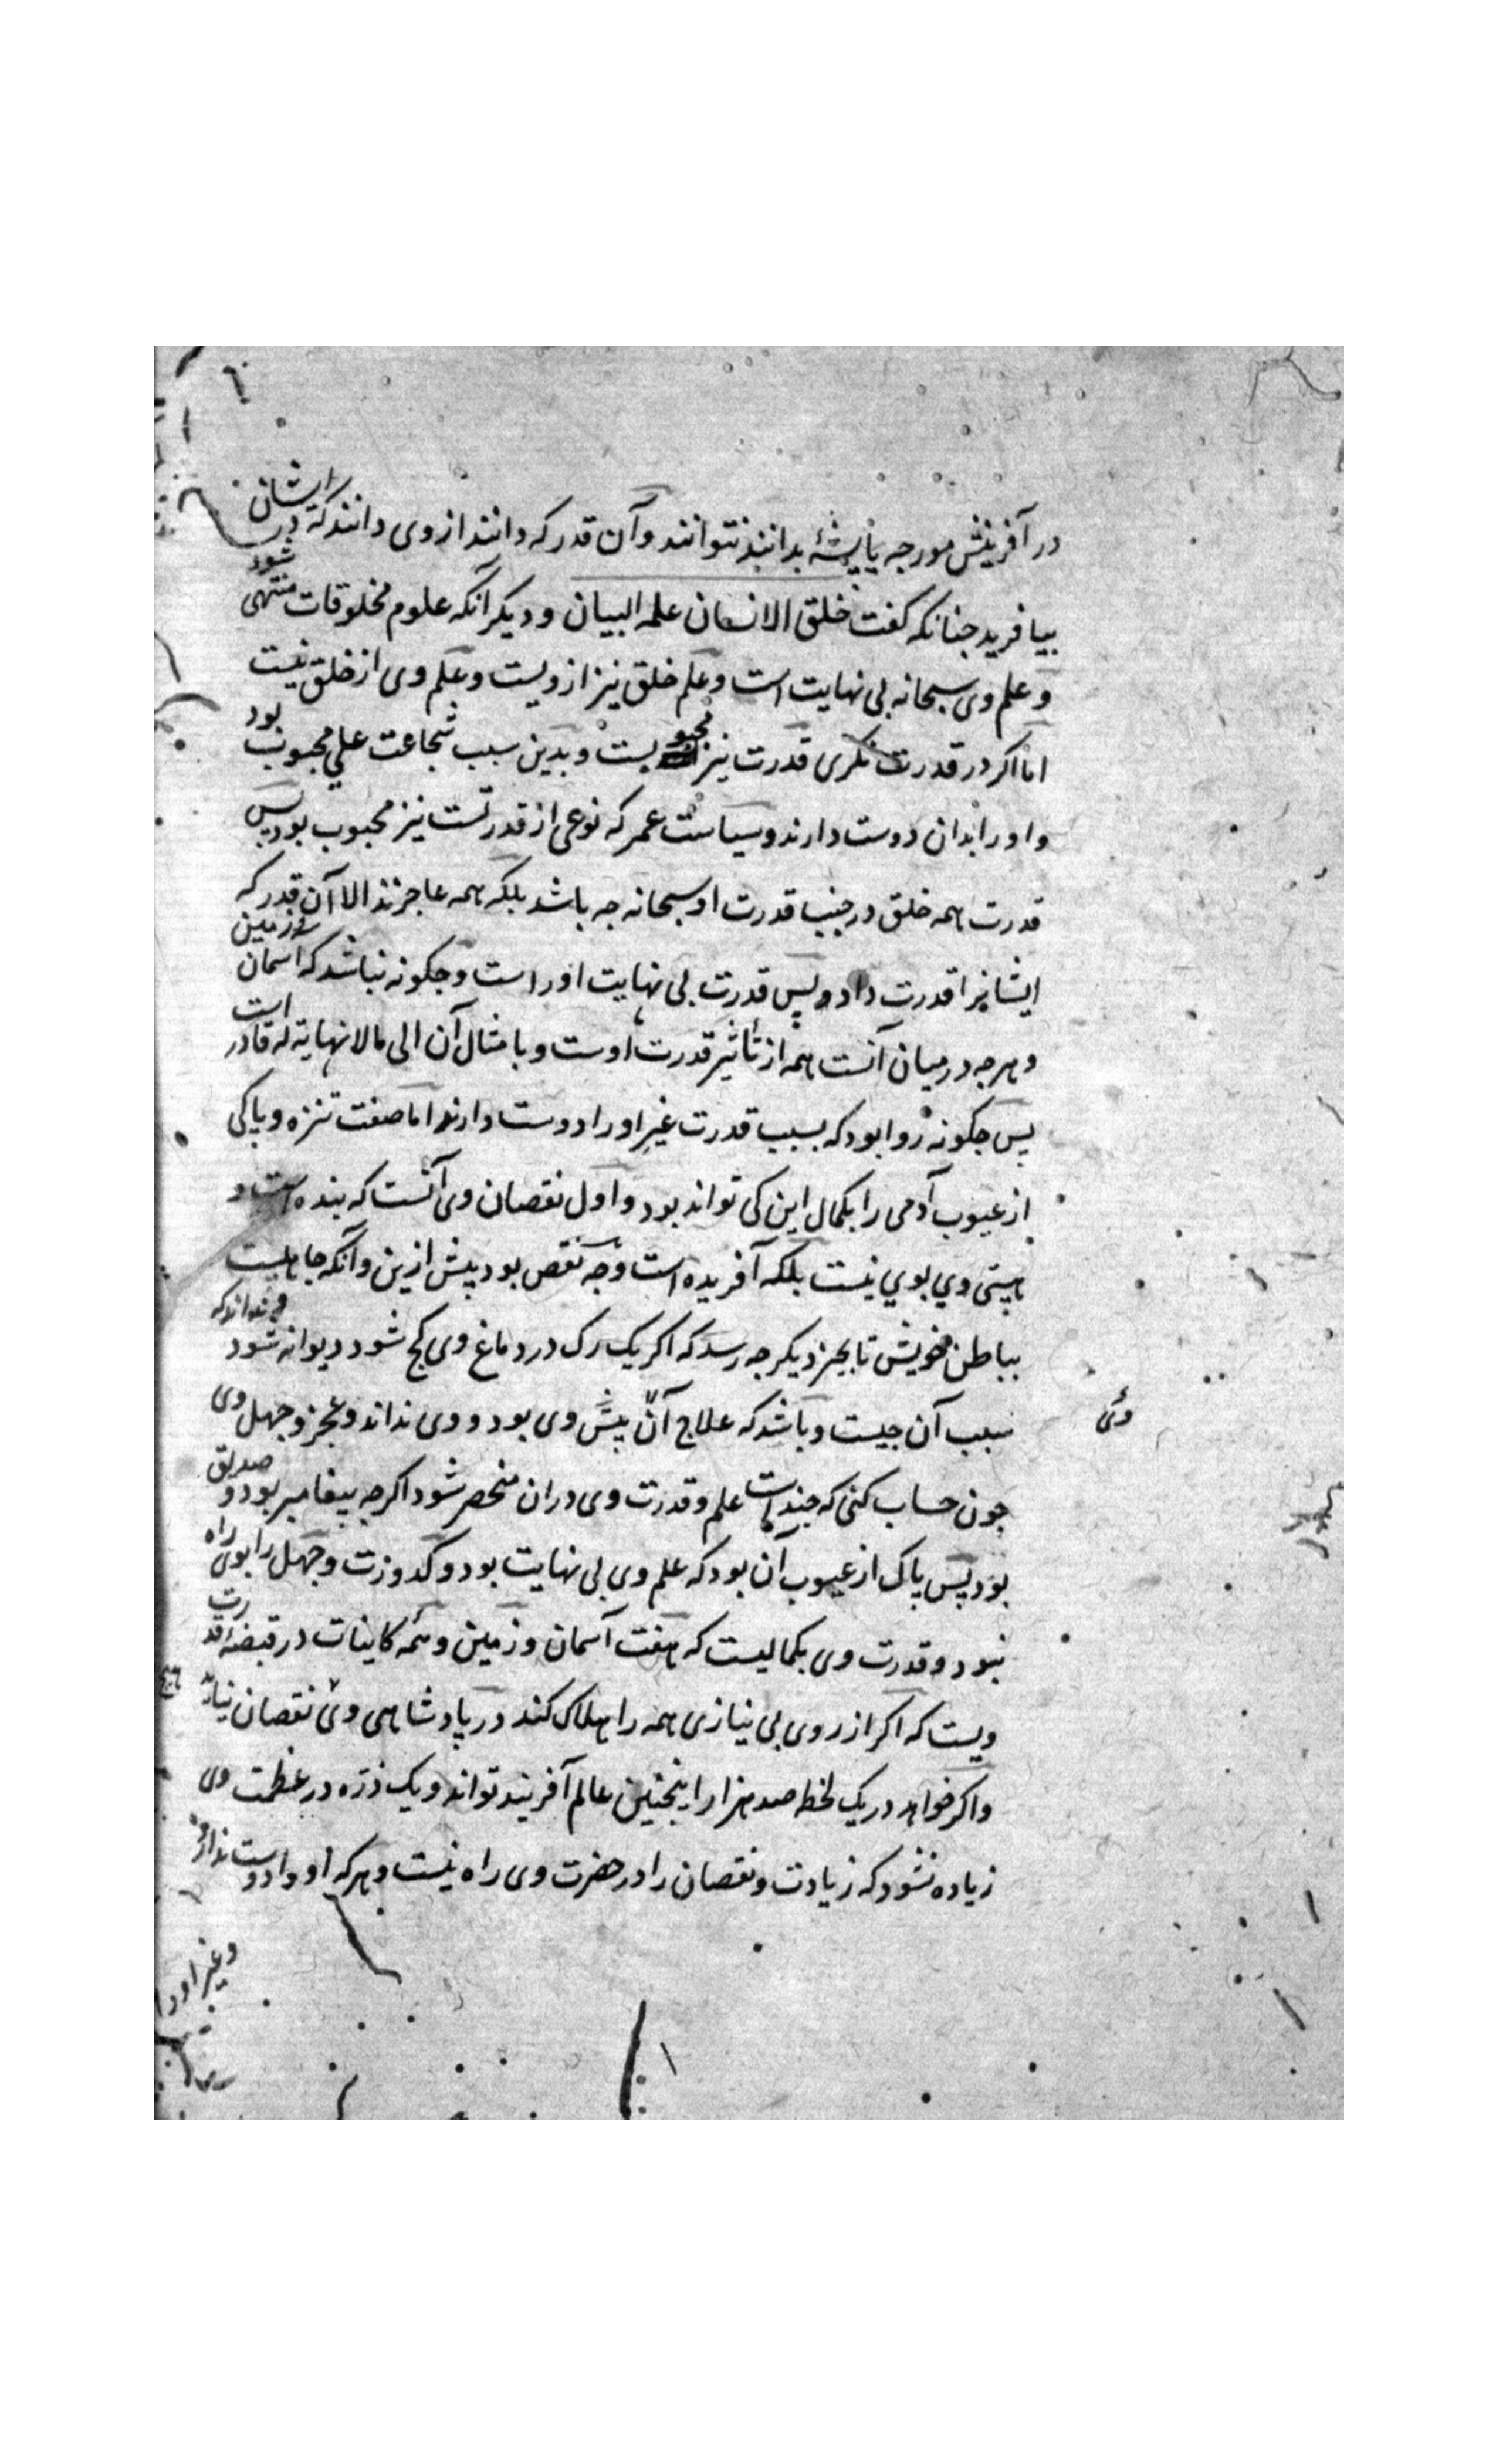 در آفرینش مورچه یا پشهٔ بدانند نتوانند و آن قدر که دانند از وی دانند که در ایشان
بیافرید چنانکه کفت خلق الانسان علمه البیان و دیکر آنکه علوم مخلوقات منتهی شود
و علم وی سبحانه بی نهایت است و علم خلق نیز ازویست و علم وی از خلق نیست
اما اکر در قدرت نکری قدرت نیز محبوبست و بدین سبب شجاعت علی محبوب بود
و او را بدان دوست دارند و سیاست عمر که نوعی از قدرتست نیز محبوب بود پس
قدرت همه خلق در جنب قدرت او سبحانه چه باشد بلکه همه عاجزند الا آن قدر که
ایشانرا قدرت داد و پس قدرت بی نهایت او راست و چکونه نباشد که آسمان و زمین
و هرچه در میان آنست همه از تأثیر قدرت اوست و بامثال آن الی مالانهایة له قادر است
پس چکونه روا بود که بسبب قدرت غیر او را دوست دارند اما صفت تنزه و پاکی
از عیوب آدمی را بکمال این کی تواند بود و اول نقصان وی آنست که بنده است و
هستی وی بوی نیست بلکه آفریده است و چه نقص بود پیش ازین و آنکه جاهلست
بباطن خویش تا بچیز دیکر چه رسد که اکر یک رک در دماغ وی کج شود دیوانه شود و نداند که
سبب آن چیست و باشد که علاج آن پیش وی بود و وی نداند و عجز و جهل وی
وی
چون حساب کنی که چند است علم و قدرت وی دران منحصر شود اکرچه پیغامبر بود و صدیق
بود پس پاک از عیوب آن بود که علم وی بی نهایت بود و کدورت و جهل را بوی راه
نبود و قدرت وی بکمالیست که هفت آسمان و زمین و همه کاینات در قبضهٔ قدرت
ویست که اکر از روی بی نیازی همه را هلاک کند در پادشاهی وی نقصان نیاید هیچ
و اکر خواهد در یک لحظه صد هزار اینچنین عالم آفریند تواند و یک ذره در عظمت وی
زیاده نشود که زیادت و نقصان را در حضرت وی راه نیست و هرکه او را دوست ندارد
و غیر اورا